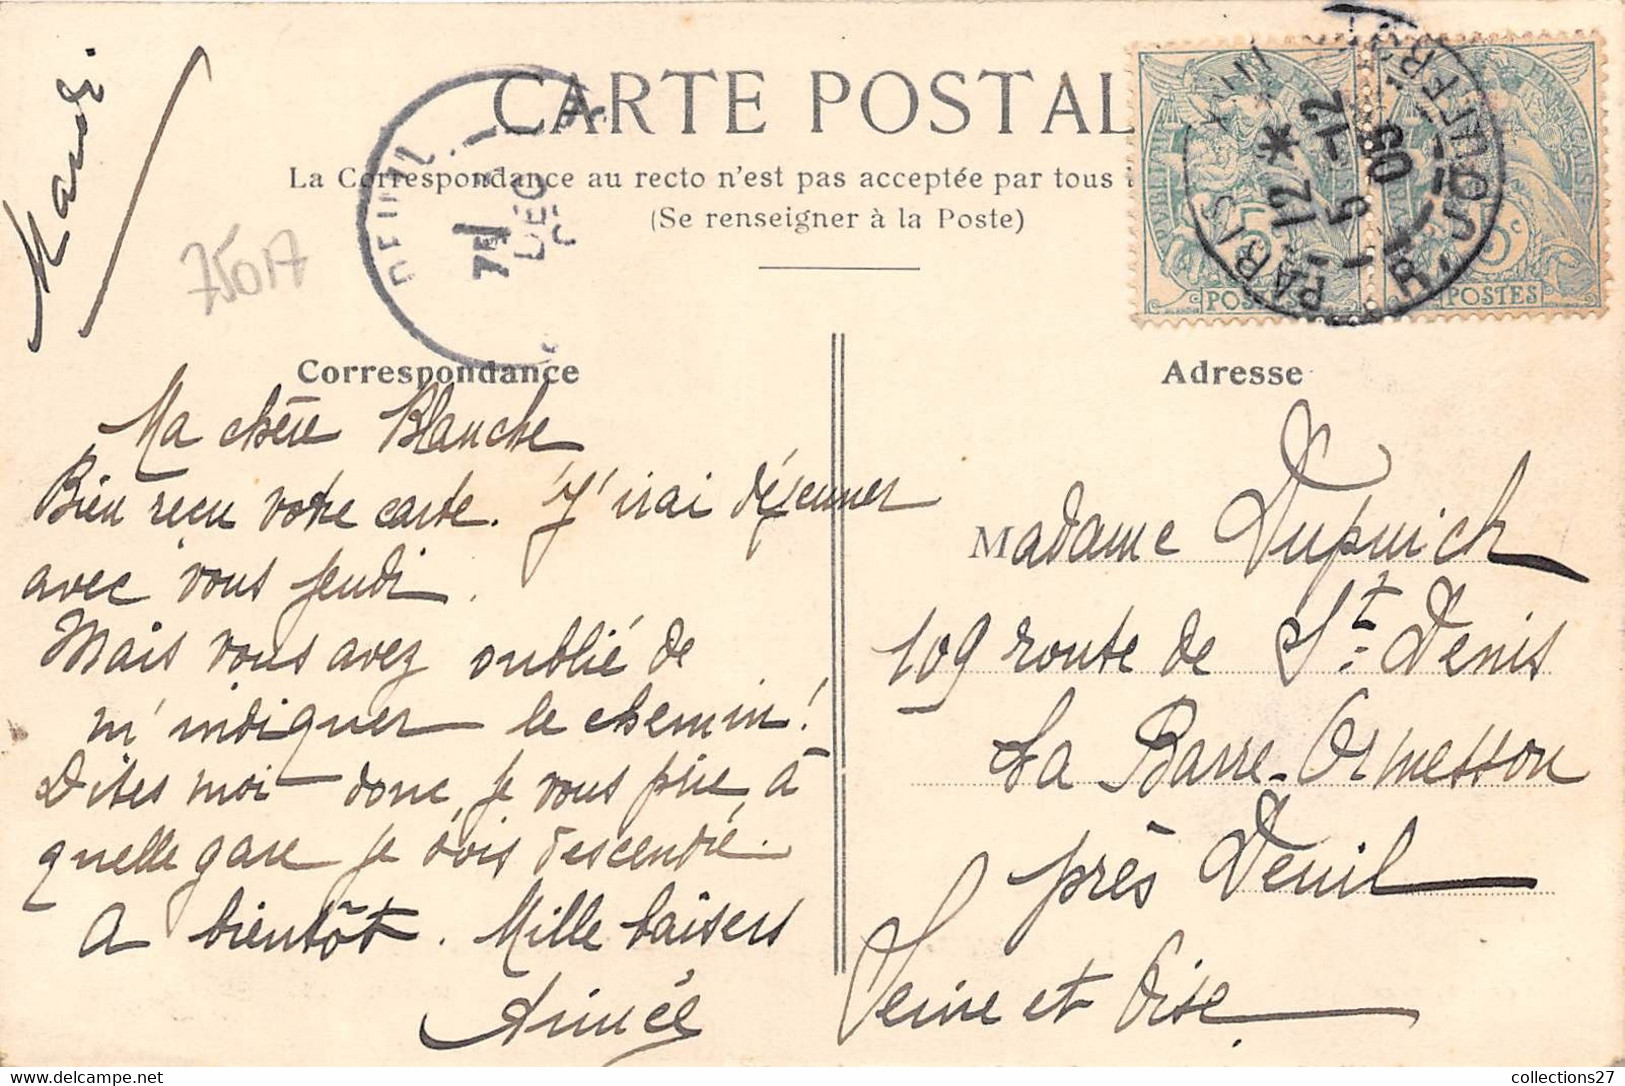 Mardi.
CARTE POSTALE
La Correspondance au recto n'est pas acceptée par tous
(Se renseigner à la Poste)
75017
DEUIL
DEC
PARIS XVII
12 *
5 -12
05
R. JOUFFROY
POSTES
5c
POSTES
Correspondance
Ma chère Blanche
Bien reçu votre carte. J'irai déjeuner
avec vous jeudi.
Mais vous avez oublié de
m'indiquer le chemin!
Dites moi donc, je vous prie, à
quelle gare je dois descendre.
A bientôt. Mille baisers
Aimée
Adresse
Madame Dupuich
109 route de St. Denis
La Barre-Ormesson
près Deuil
Seine et Oise
collections27